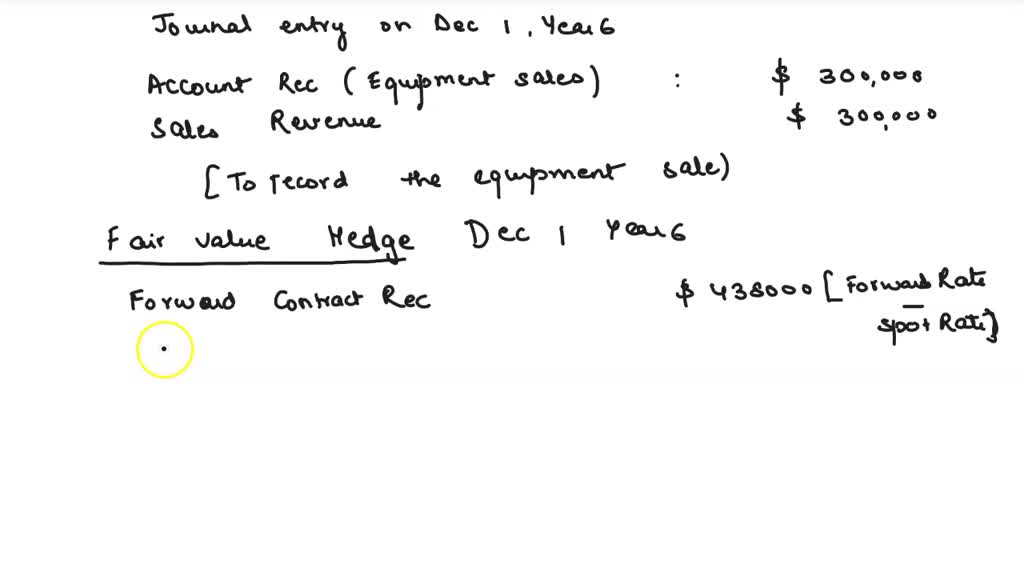 Journal entry on Dec 1, Year 6
Account Rec (Equipment sales) : $ 300,000
Sales Revenue $ 300,000
[To record the equipment sale)
Fair value Hedge Dec 1 Year 6
Forward Contract Rec $ 438000 [Forward Rate
– Spot Rate]